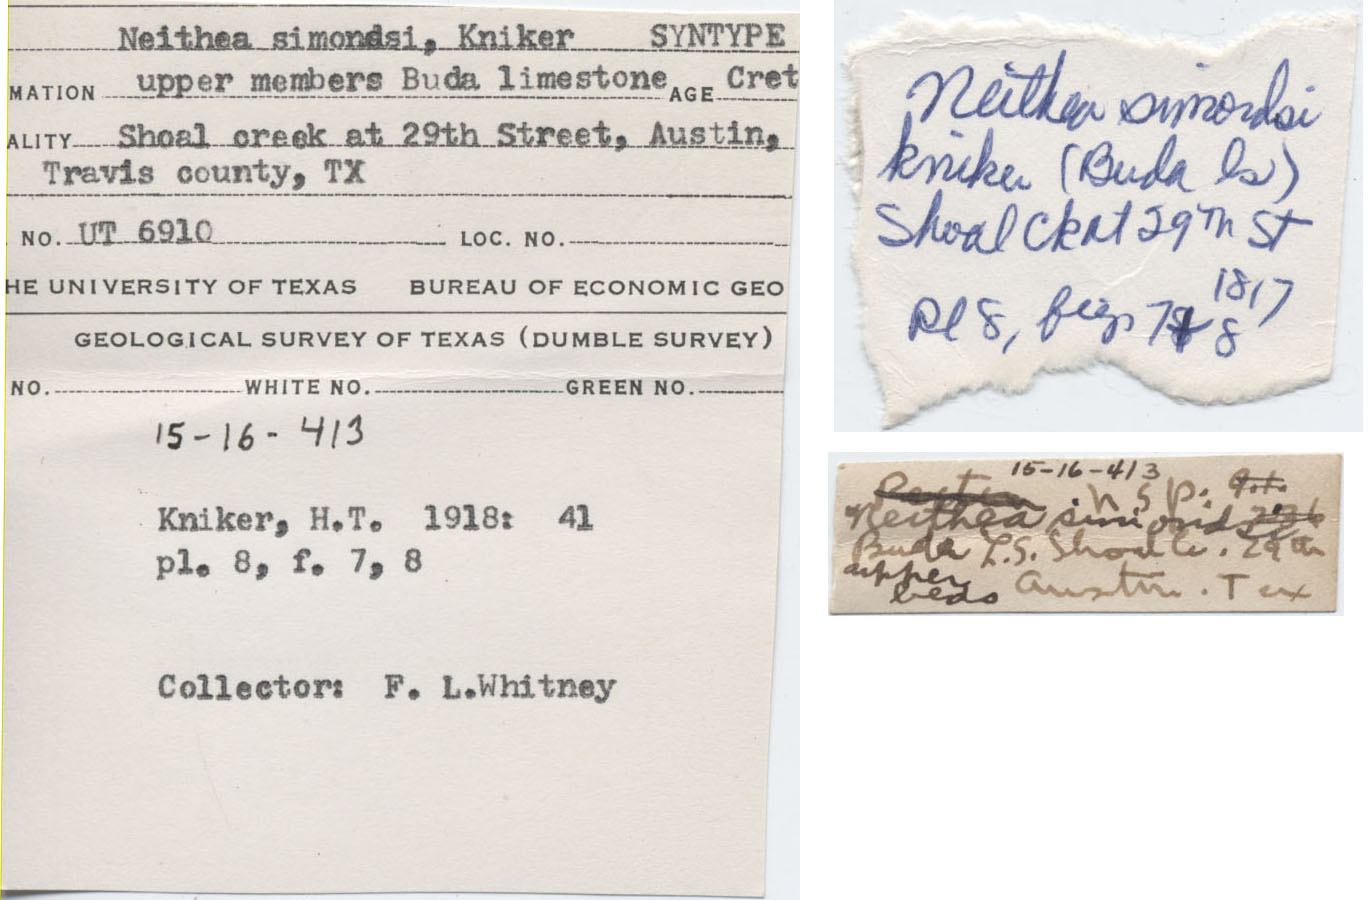 Neithea simondsi, Kniker SYNTYPE
MATION upper members Buda limestone AGE Cret
ALITY Shoal creek at 29th Street, Austin,
Travis county, TX
NO. UT 6910 LOC. NO.
HE UNIVERSITY OF TEXAS BUREAU OF ECONOMIC GEO
GEOLOGICAL SURVEY OF TEXAS (DUMBLE SURVEY)
NO. WHITE NO. GREEN NO.
15-16-413
Kniker, H.T. 1918: 41
pl. 8, f. 7, 8
Collector: F. L.Whitney
Neithea simondsi
Kniker (Buda ls)
Shoal Ck at 29th St
1817
Pl 8, figs 7+8
15-16-413
n sp.
Neithea simondsi
Buda L.S. Shoal C. 29th
upper
beds Austin. Tex